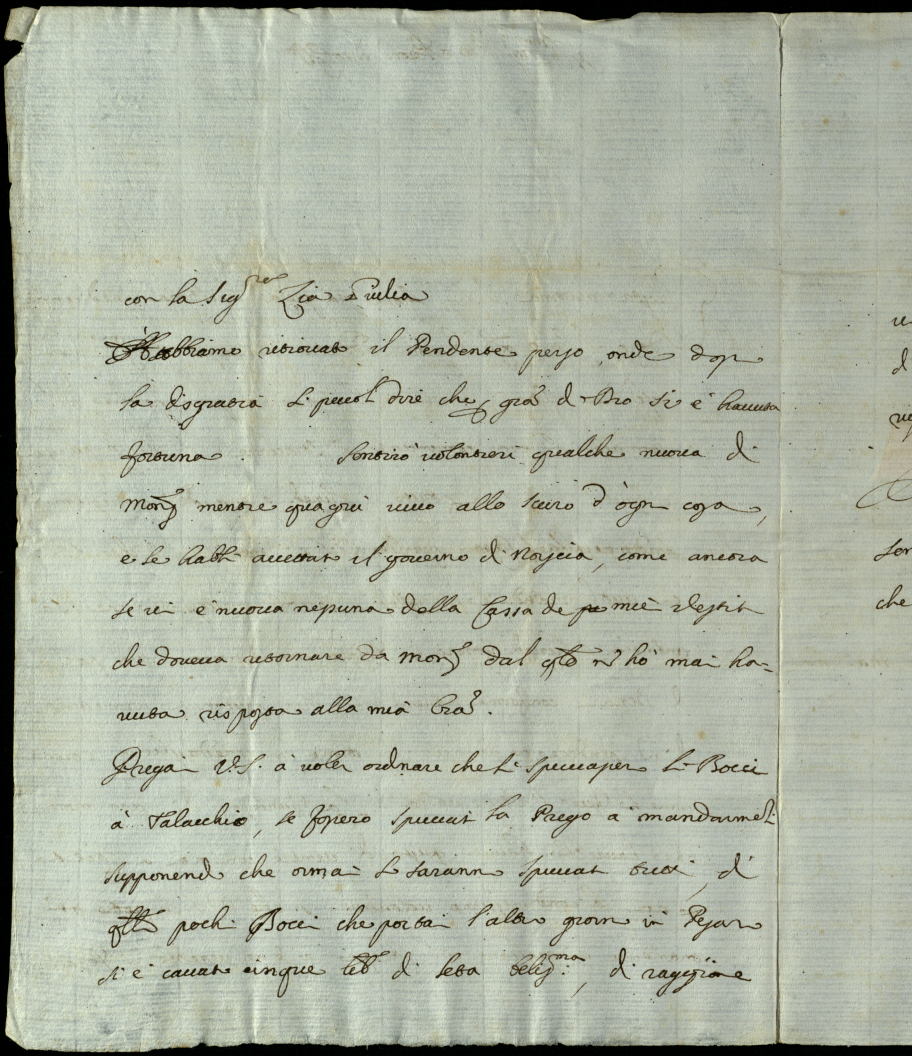 con la Sig.re Zia Giulia
Habbiamo ritrovato il Pendente perso, onde dopo
la disgratia si puol dire che p gra d Dio si è havuta
fortuna. Sentirò volontieri qualche nuova di
Mons mentre quagiù vivo allo scuro d'ogni cosa,
e se habbi accettato il governo di Norscia, come ancora
se vi è nuova nesuna della Cassa de miei vestiti
che doveva ritornare da Mons dal qle no hò mai ha-
vuta risposta alla mia lra.
Pregai V.S. à voler ordinare che si Bocci
à Talacchio, se fossero la Prego à mandarmeli
supponendo che ormai si saranno tutti, di
qlli pochi Bocci che portai l'altro giorno in Pesaro
si è cavato cinque lib di seta belis.ma, di raggione
ve
d
Ser
che